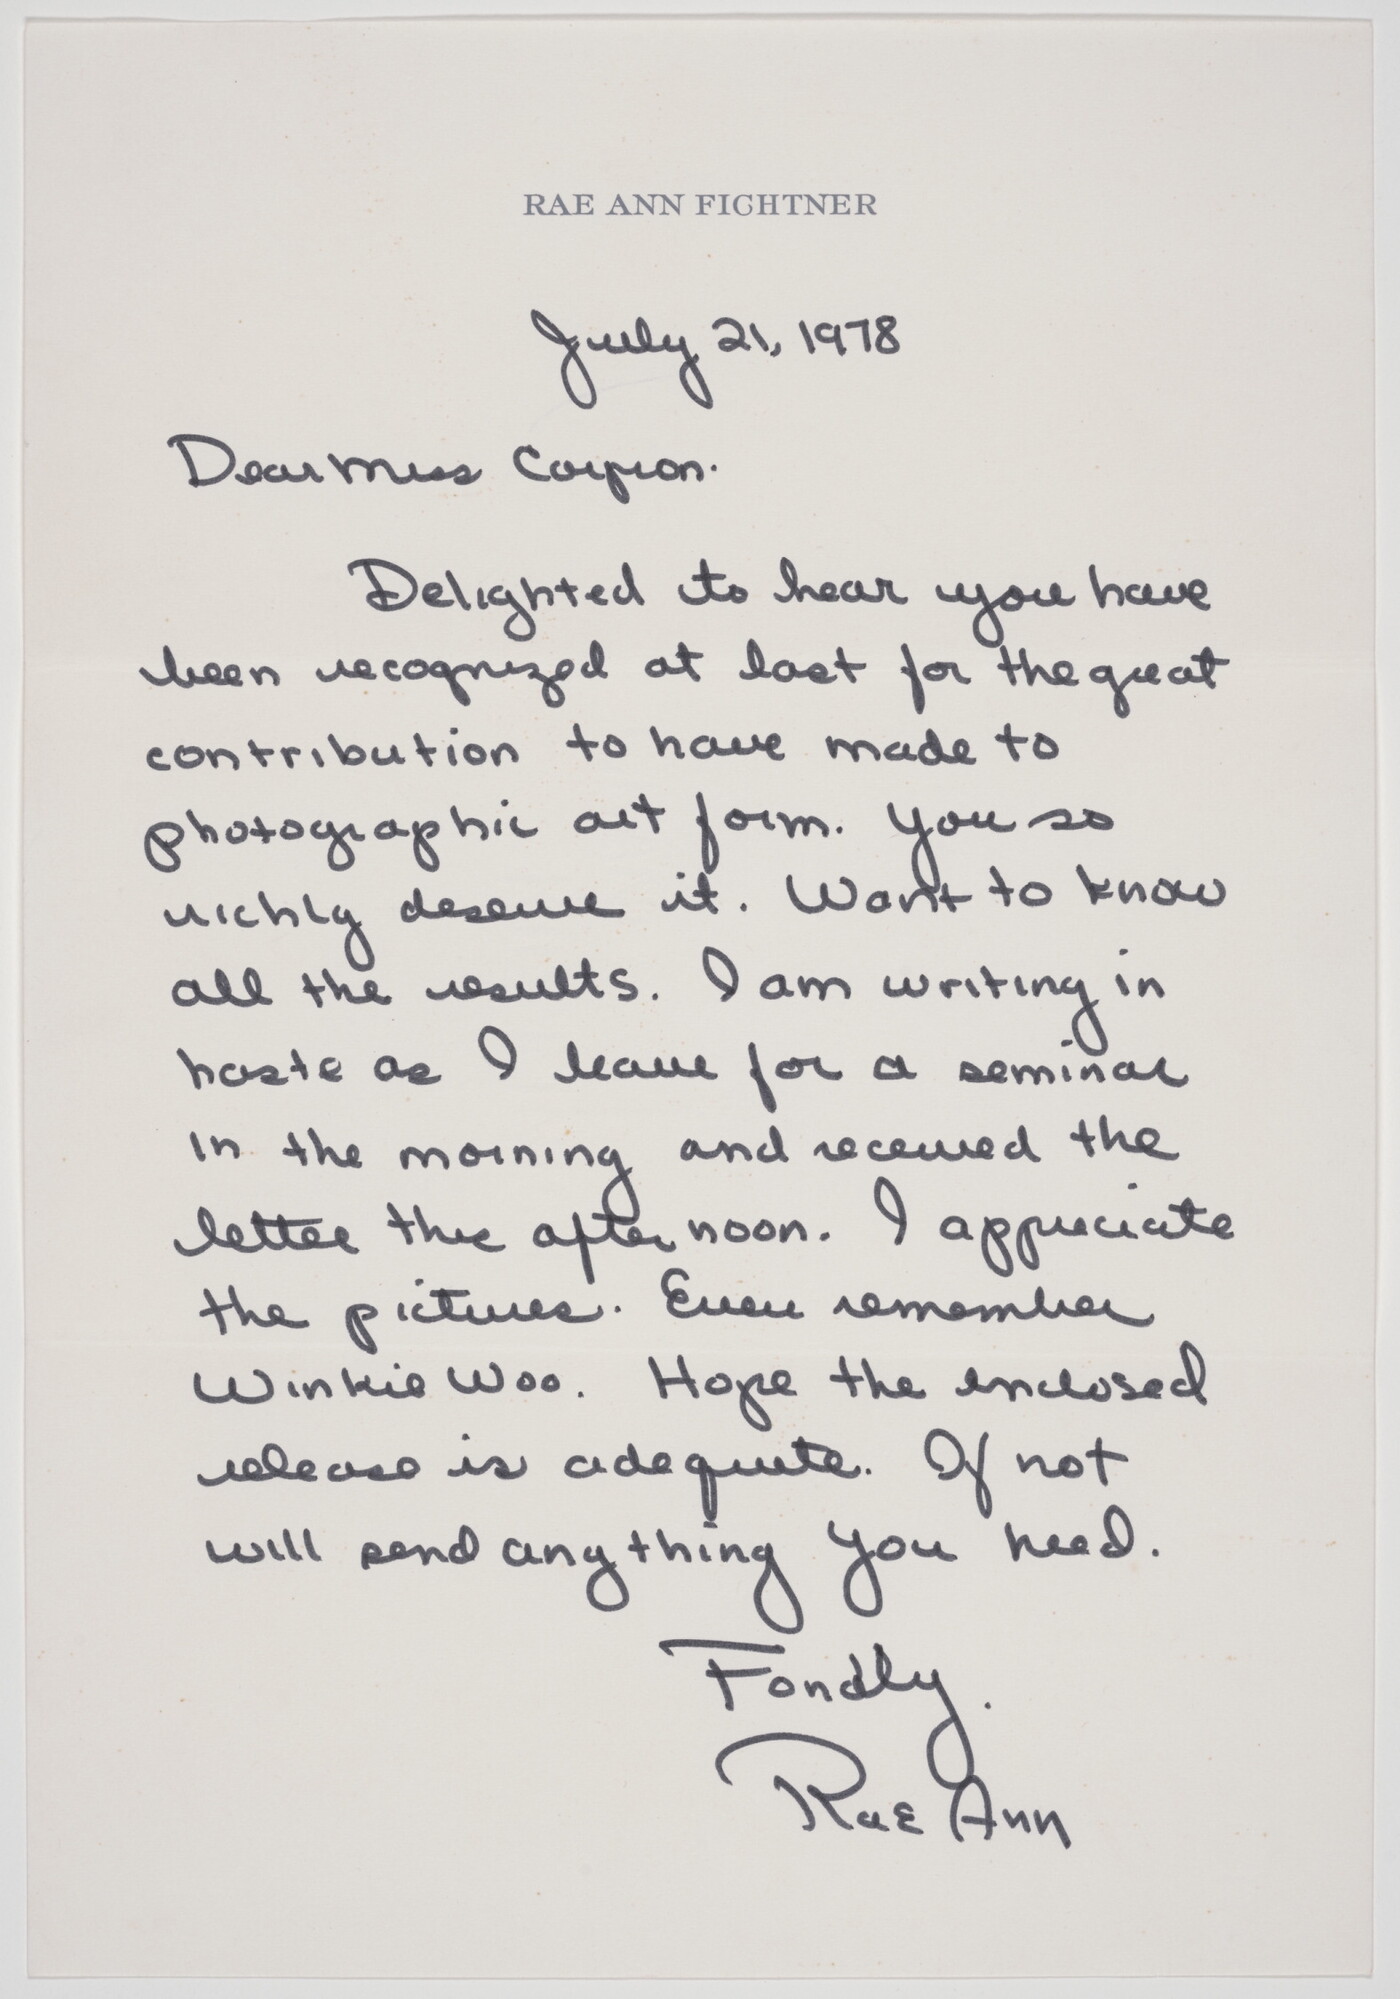 RAE ANN FIGHTNER
July 21, 1978
Dear Miss Corpron.
Delighted to hear you have
been recognized at last for the great
contribution to have made to
photographic art form. You so
richly deserve it. Want to know
all the results. I am writing in
haste as I leave for a seminar
in the morning and received the
letter this afternoon. I appreciate
the pictures. Even remember
Winkie Woo. Hope the enclosed
release is adequate. If not
will send anything you need.
Fondly.
Rae Ann